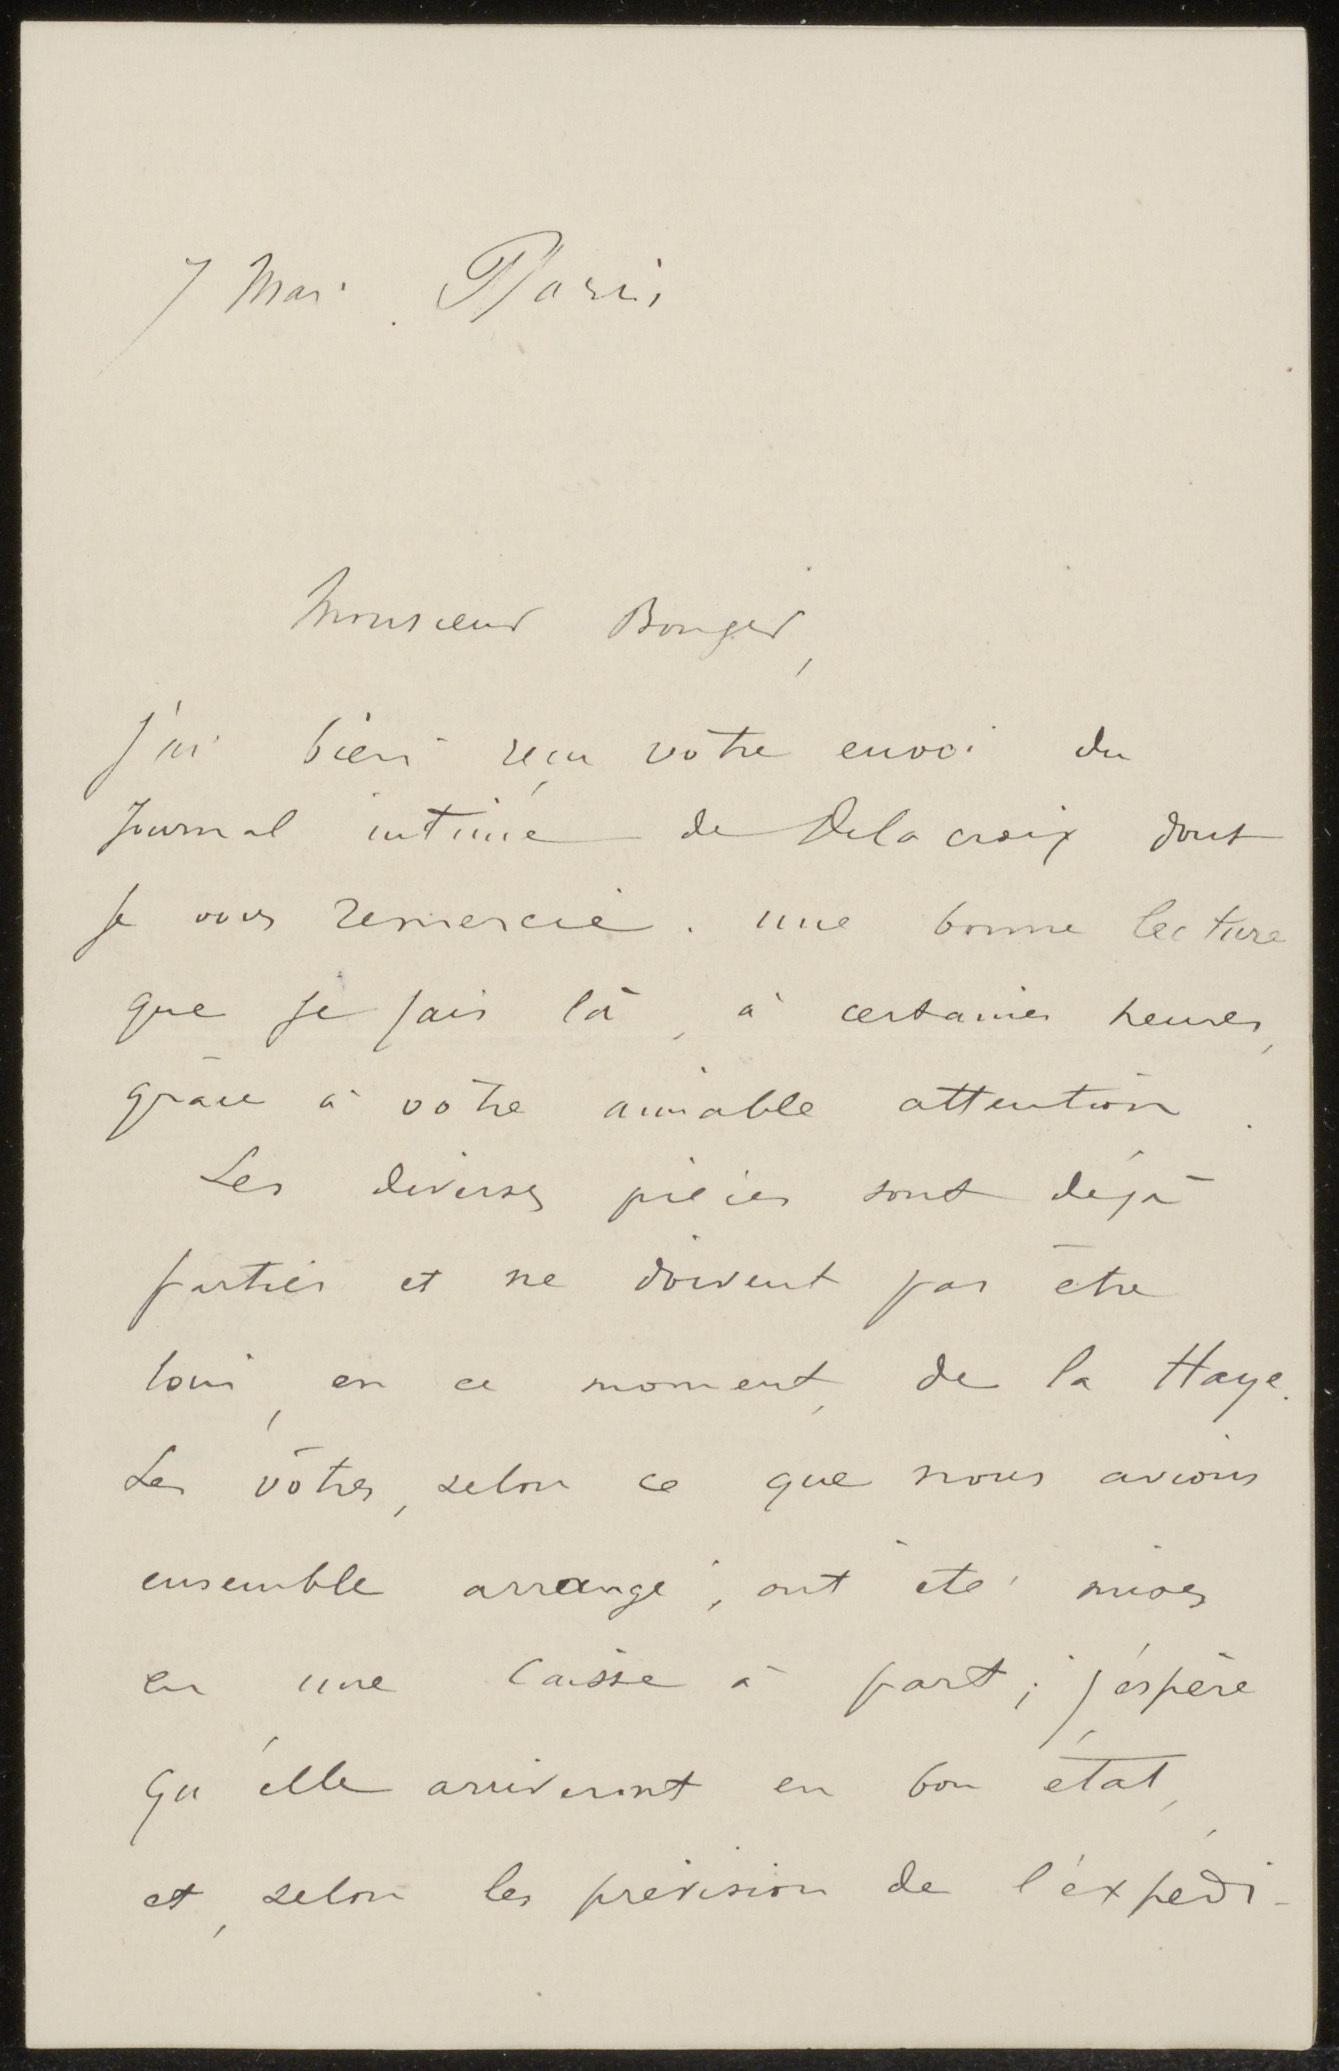 7 Mai. Paris
Monsieur Bonger,
j'ai bien reçu votre envoi du
Journal intime de Delacroix dont
je vous remercie. une bonne lecture
que je fais là, à certaines heures,
grâce à votre aimable attention.
Les diverses pièces sont déjà
parties et ne doivent pas être
loin, en ce moment, de la Haye.
Les vôtres, selon ce que nous avions
ensemble arrangé, ont été mises
en une caisse à part; j'espère
qu'elle arriveront en bon état,
et, selon les prévision de l'expédi-